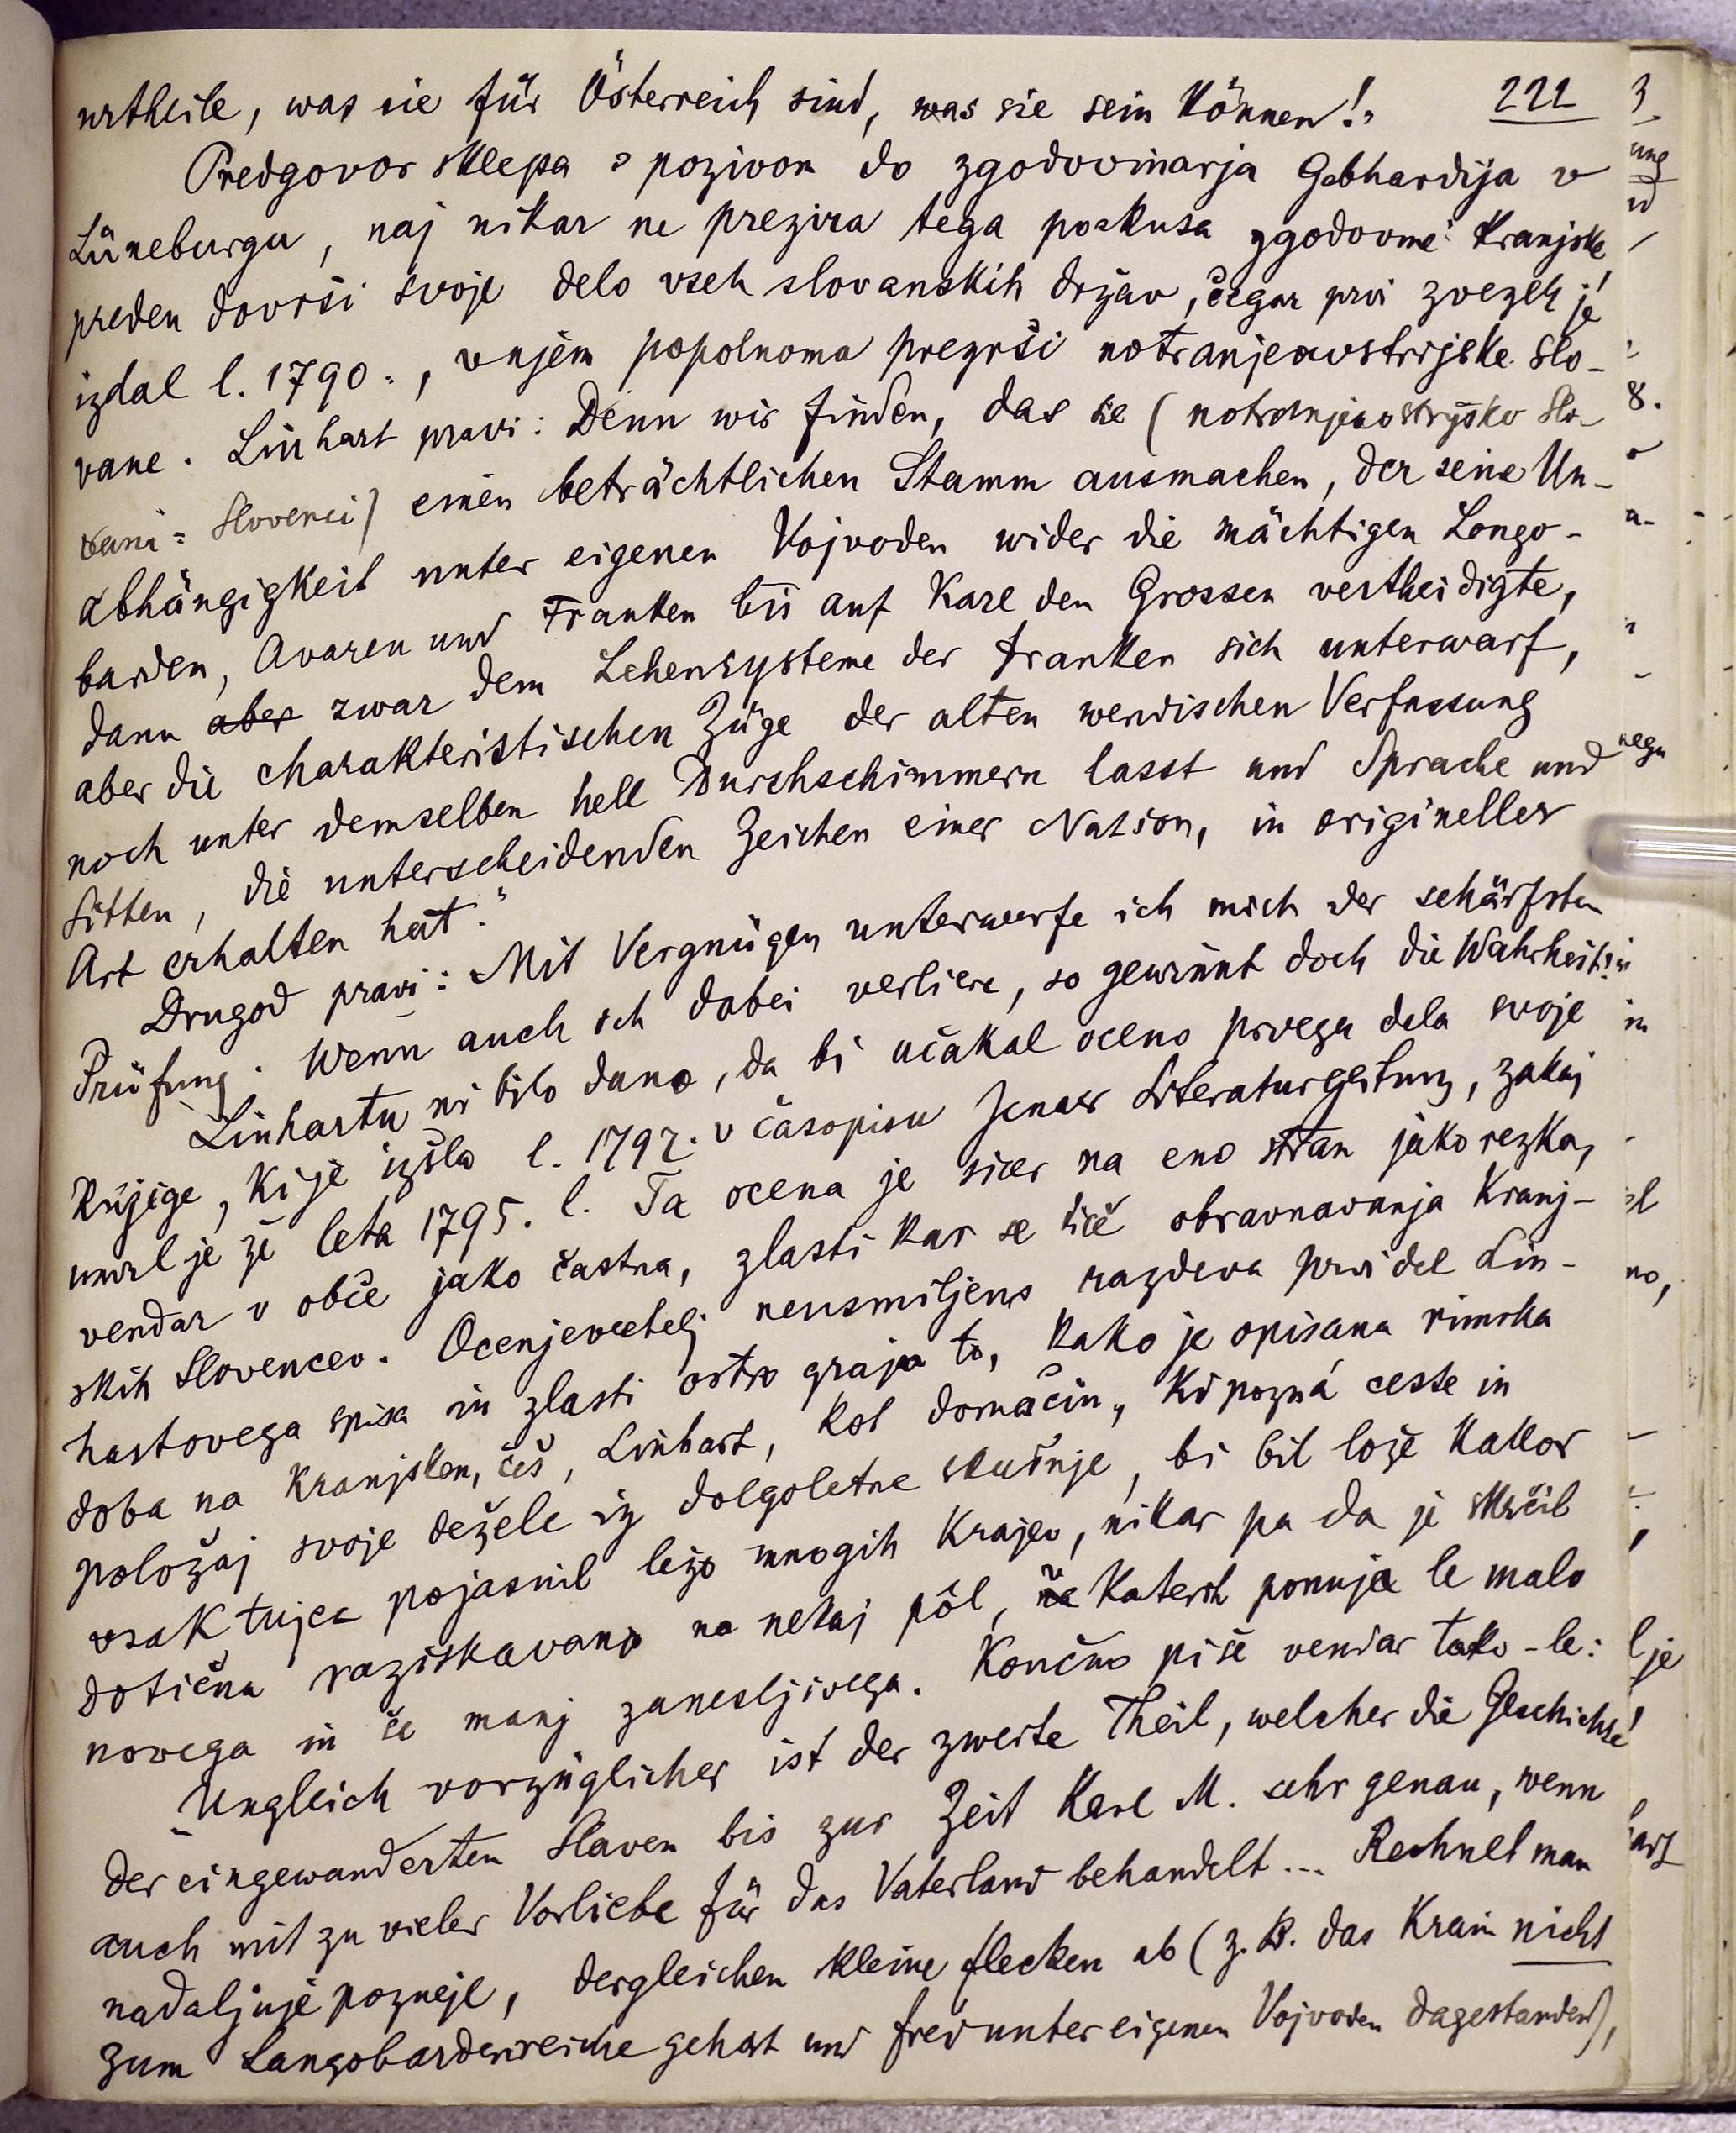 urtheile, was sie für Österreich sind, was sie sein können!" 222
Predgovor sklepa s pozivom do zgodovinarja Gebhardija v
Lüneburgu, naj nikar ne prezira tega poskusa zgodovine Kranjske
preden dovrši svoje delo vseh slovanskih držav, čegar prvi zvezek je
izdal l. 1790., v njem popolnoma prezrši notranjeavstrijske Slo-
vane. Linhart pravi: Denn wir finden, das sie (notranjeavstrijsko Slo-
vani = Slovenci) einen beträchtlichen Stamm ausmachen, der seine Un-
abhängigkeit unter eigenen Vojvoden wider die mächtigen Longo-
barden, Avaren und Franken bis auf Karl den Grossen vertheidigte,
dann aber zwar dem Lehensysteme der Franken sich unterwarf,
aber die charakteristischen Züge der alten wendischen Verfassung
noch unter demselben hell durchschimmern lasst und Sprache und
Sitten, die unterscheidenden Zeichen einer Nation, in origineller
Art erhalten hat."
Drugod pravi: Mit Vergnügen unterwerfe ich mich der schärfsten
Prüfung. Wenn auch ich dabei verliere, so gewinnt doch die Wahrheit!"
Linhartu ni bilo dano, da bi učakal oceno prvega dela svoje
knjige, ki je izšla l. 1797. v časopisu Jenaer Literaturzeitung, zakaj
umrl je že leta 1795. l. Ta ocena je sicer na eno stran jako rezka,
vendar v obče jako častna, zlasti kar se tiče obravnavanja Kranj-
skih Slovencev. Ocenjevatelj neusmiljeno razdeva prvi del Lin-
hartovega spisa in zlasti ostro graja to, kako je opisana rimska
doba na Kranjskem, češ, Linhart, kot domačin, ki pozná ceste in
položaj svoje dežele iz dolgoletne skušnje, bi bil lože kakor
vsak tujec pojasnil ležo mnogih krajev, nikar pa da je skrčil
dotična raziskavanja na nekaj pôl, v katerih ponuja le malo
novega in še manj zanesljivega. Končno piše vendar tako-le:
"Ungleich vorzüglicher ist der zweite Theil, welcher die Geschichte
der eingewanderten Slaven bis zur Zeit Karl M. sehr genau, wenn
auch mit zu vieler Vorliebe für das Vaterland behandelt... Rechnet man
nadaljuje pozneje, dergleichen kleine flecken ab (z. B. das Krain nicht
zum Langobardenreiche gehört und frei unter eigenen Vojvoden dagestanden),